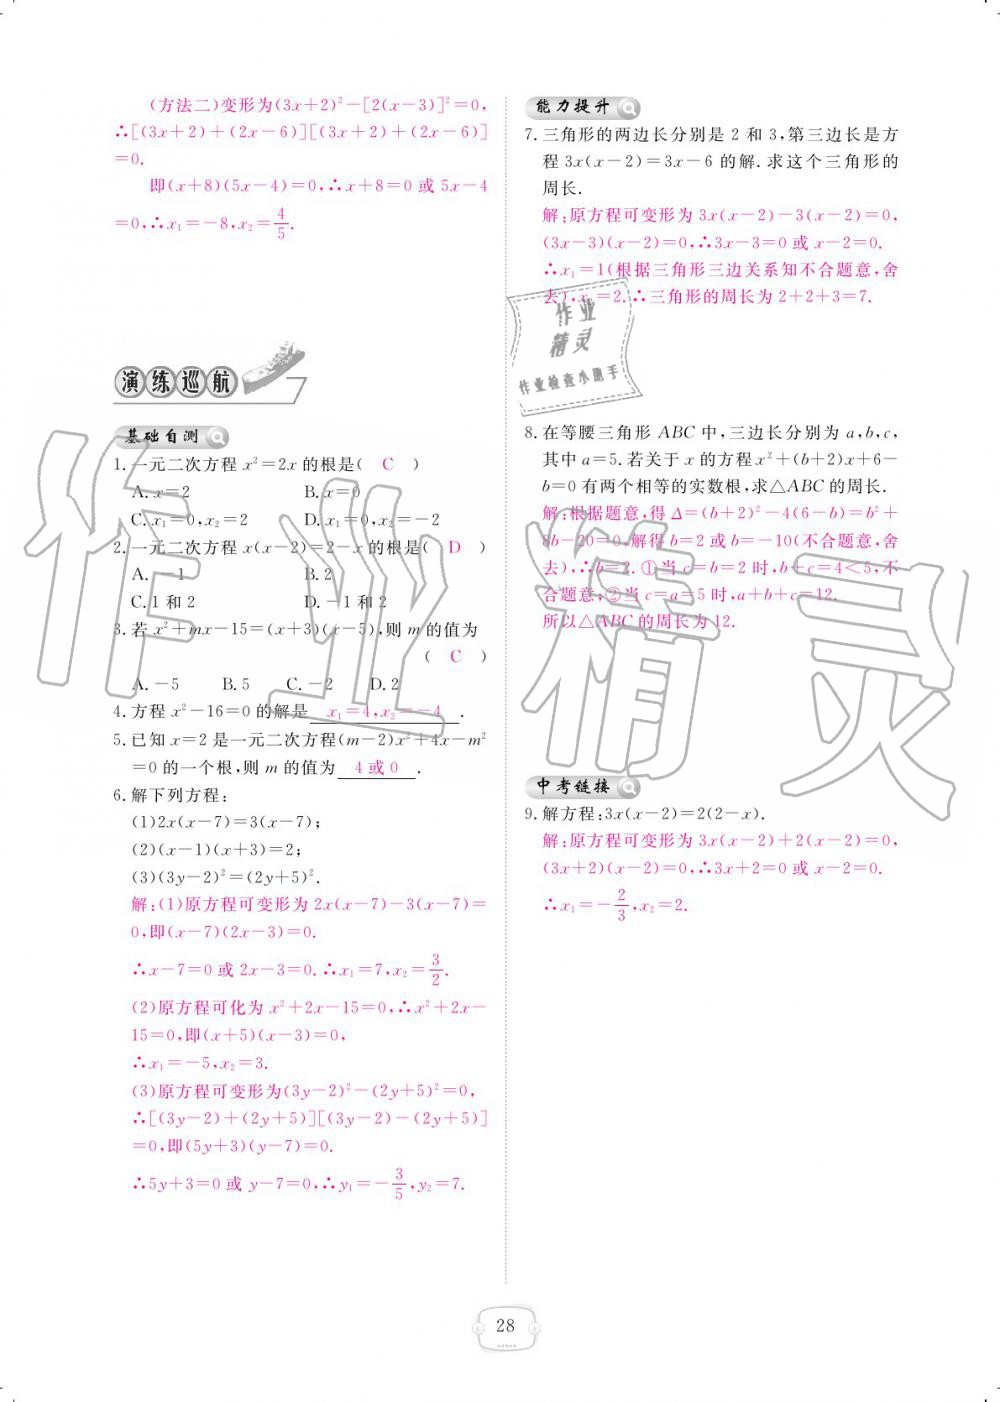 (方法二)变形为(3x+2)²-[2(x-3)]²=0,
∴[(3x+2)+(2x-6)][(3x+2)+(2x-6)]
=0.
即(x+8)(5x-4)=0,∴x+8=0 或 5x-4
=0,∴x₁=-8,x₂=4/5.
演练巡航
基础自测
1.一元二次方程 x²=2x 的根是( C )
A.x=2 B.x=0
C.x₁=0,x₂=2 D.x₁=0,x₂=-2
2.一元二次方程 x(x-2)=2-x 的根是( D )
A.-1 B.2
C.1 和 2 D.-1 和 2
3.若 x²+mx-15=(x+3)(x-5),则 m 的值为
( C )
A.-5 B.5 C.-2 D.2
4.方程 x²-16=0 的解是 x₁=4,x₂=-4 .
5.已知 x=2 是一元二次方程(m-2)x²+4x-m²
=0 的一个根,则 m 的值为 4 或 0 .
6.解下列方程:
(1)2x(x-7)=3(x-7);
(2)(x-1)(x+3)=2;
(3)(3y-2)²=(2y+5)².
解:(1)原方程可变形为 2x(x-7)-3(x-7)=
0,即(x-7)(2x-3)=0.
∴x-7=0 或 2x-3=0.∴x₁=7,x₂=3/2.
(2)原方程可化为 x²+2x-15=0,∴x²+2x-
15=0,即(x+5)(x-3)=0,
∴x₁=-5,x₂=3.
(3)原方程可变形为(3y-2)²-(2y+5)²=0,
∴[(3y-2)+(2y+5)][(3y-2)-(2y+5)]
=0,即(5y+3)(y-7)=0.
∴5y+3=0 或 y-7=0,∴y₁=-3/5,y₂=7.
能力提升
7.三角形的两边长分别是 2 和 3,第三边长是方
程 3x(x-2)=3x-6 的解.求这个三角形的
周长.
解:原方程可变形为 3x(x-2)-3(x-2)=0,
(3x-3)(x-2)=0,∴3x-3=0 或 x-2=0.
∴x₁=1(根据三角形三边关系知不合题意,舍
去),x₂=2.∴三角形的周长为 2+2+3=7.
作业
精灵
作业检查小助手
8.在等腰三角形 ABC 中,三边长分别为 a,b,c,
其中 a=5.若关于 x 的方程 x²+(b+2)x+6-
b=0 有两个相等的实数根,求△ABC 的周长.
解:根据题意,得 Δ=(b+2)²-4(6-b)=b²+
8b-20=0,解得 b=2 或 b=-10(不合题意,舍
去),∴b=2.①当 c=b=2 时,b+c=4<5,不
合题意;②当 c=a=5 时,a+b+c=12.
所以△ABC 的周长为 12.
中考链接
9.解方程:3x(x-2)=2(2-x).
解:原方程可变形为 3x(x-2)+2(x-2)=0,
(3x+2)(x-2)=0,∴3x+2=0 或 x-2=0.
∴x₁=-2/3,x₂=2.
作业精灵
28